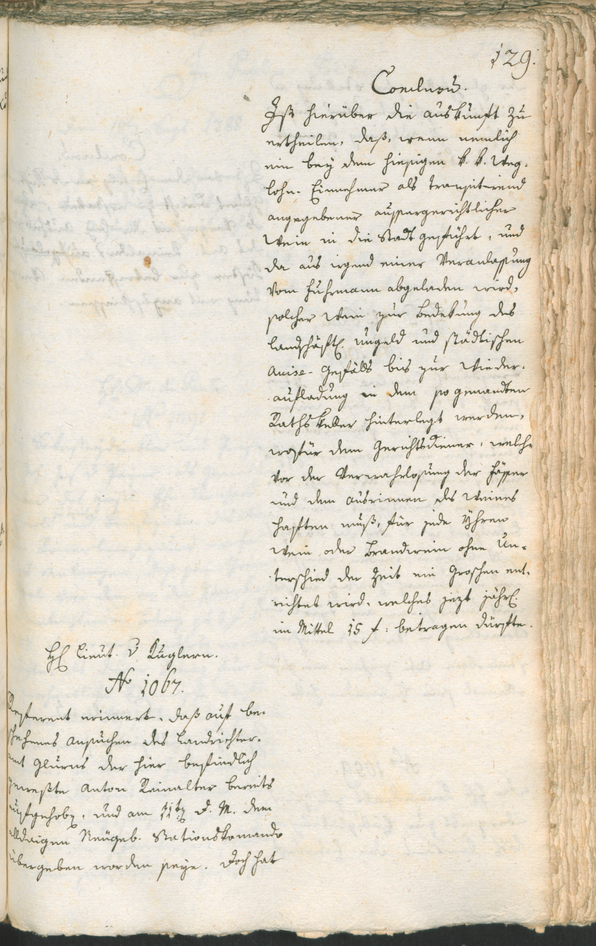 129.
Conclusum.
Ist hierüber die auskunft zu
ertheilen, daß, wenn nemlich
ein bey dem hiesigen k. k. Weg-
lohn-Einnehmer als transitirend
angegebener aussergerichtlicher
Wein in die Stadt geführt, und
da aus irgend einer Veranlassung
vom Fuhrmann abgeladen wird,
solcher Wein zur Bedekung des
Landschäftl. Ungeld und städtischen
Gefälls bis zur Wieder-
aufladung in dem so genannten
Rathskeller hinterlegt werden,
wofür dem Gerichtsdiener, welcher
vor der Verwahrlosung der Fässer
und dem Ausrinnen des Weines
haften muß, für jede Yhren
Wein oder Brandwein ohne Un-
terschied der Zeit ein Groschen ent-
richtet wird, welches jezt jährl.
im Mittel 15 f: betragen dürfte.
H. Lieut. v Kuglern.
No 1067.
Referent erinnert, daß auf be-
schehenes Ansuchen des Landrichter-
amt Glurns der hier befindlich
gewesste Anton Rainalter bereits
aufgehobt, und am D. M. dem
Neügeb. Stationskomando
übergeben worden seye. Doch hat